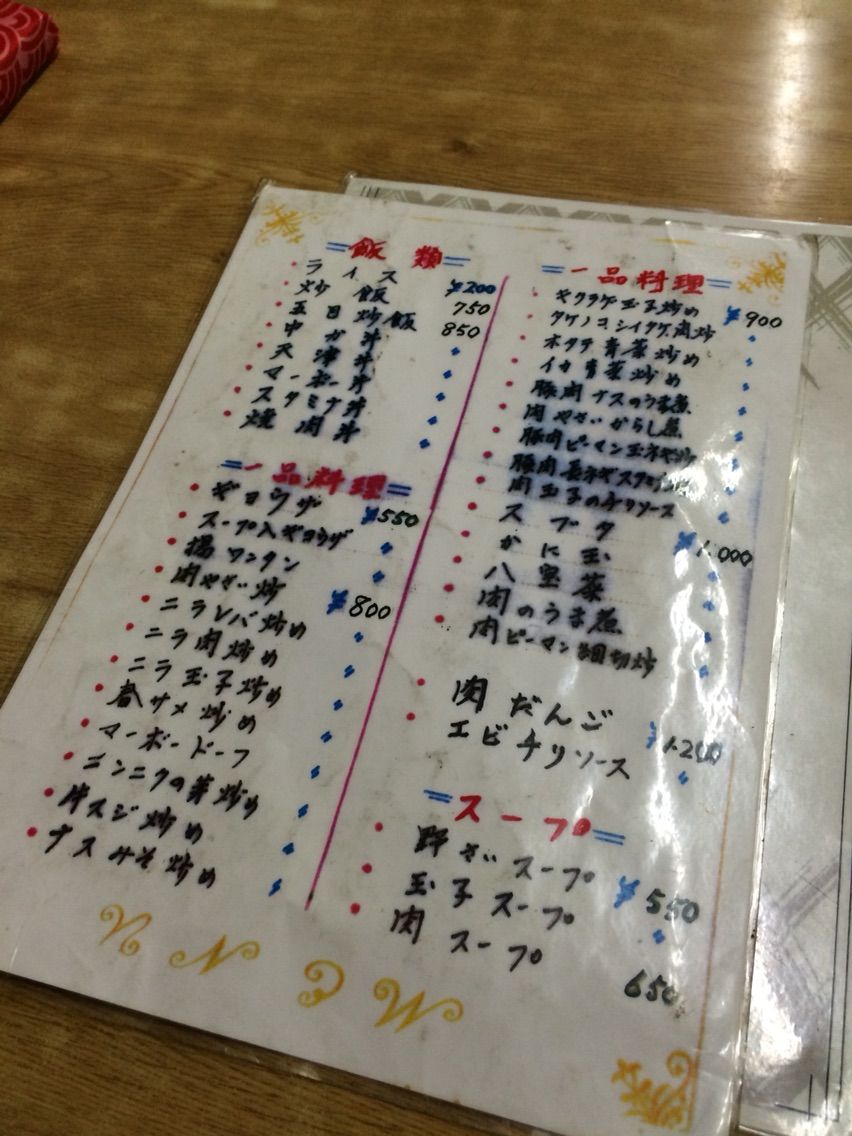 飯類
ライス ¥200
炒飯 750
五目炒飯 850
中か丼 〃
天津丼 〃
マーボー丼 〃
スタミナ丼 〃
焼肉丼 〃
一品料理
ギョウザ ¥550
スープ入ギョウザ 〃
揚ワンタン 〃
肉やさい炒 ¥800
ニラレバ炒め 〃
ニラ肉炒め 〃
ニラ玉子炒め 〃
春サメ炒め 〃
マーボードーフ 〃
ニンニクの芽炒め 〃
牛スジ炒め 〃
ナスみそ炒め 〃
一品料理
キクラゲ玉子炒め ¥900
タケノコシイタケ肉炒 〃
ホタテ青菜炒め 〃
イカ青菜炒め 〃
豚肉ナスのうま煮 〃
肉やさいからし煮 〃
豚肉ピーマン玉ネギ炒 〃
豚肉長ネギスタミナ 〃
肉玉子のチリソース 〃
スブタ ¥1.000
かに玉 〃
八宝菜 〃
肉のうま煮 〃
肉ピーマン細切炒 〃
肉だんご ¥1.200
エビチリソース 〃
スープ
野さいスープ ¥550
玉子スープ 〃
肉スープ 650